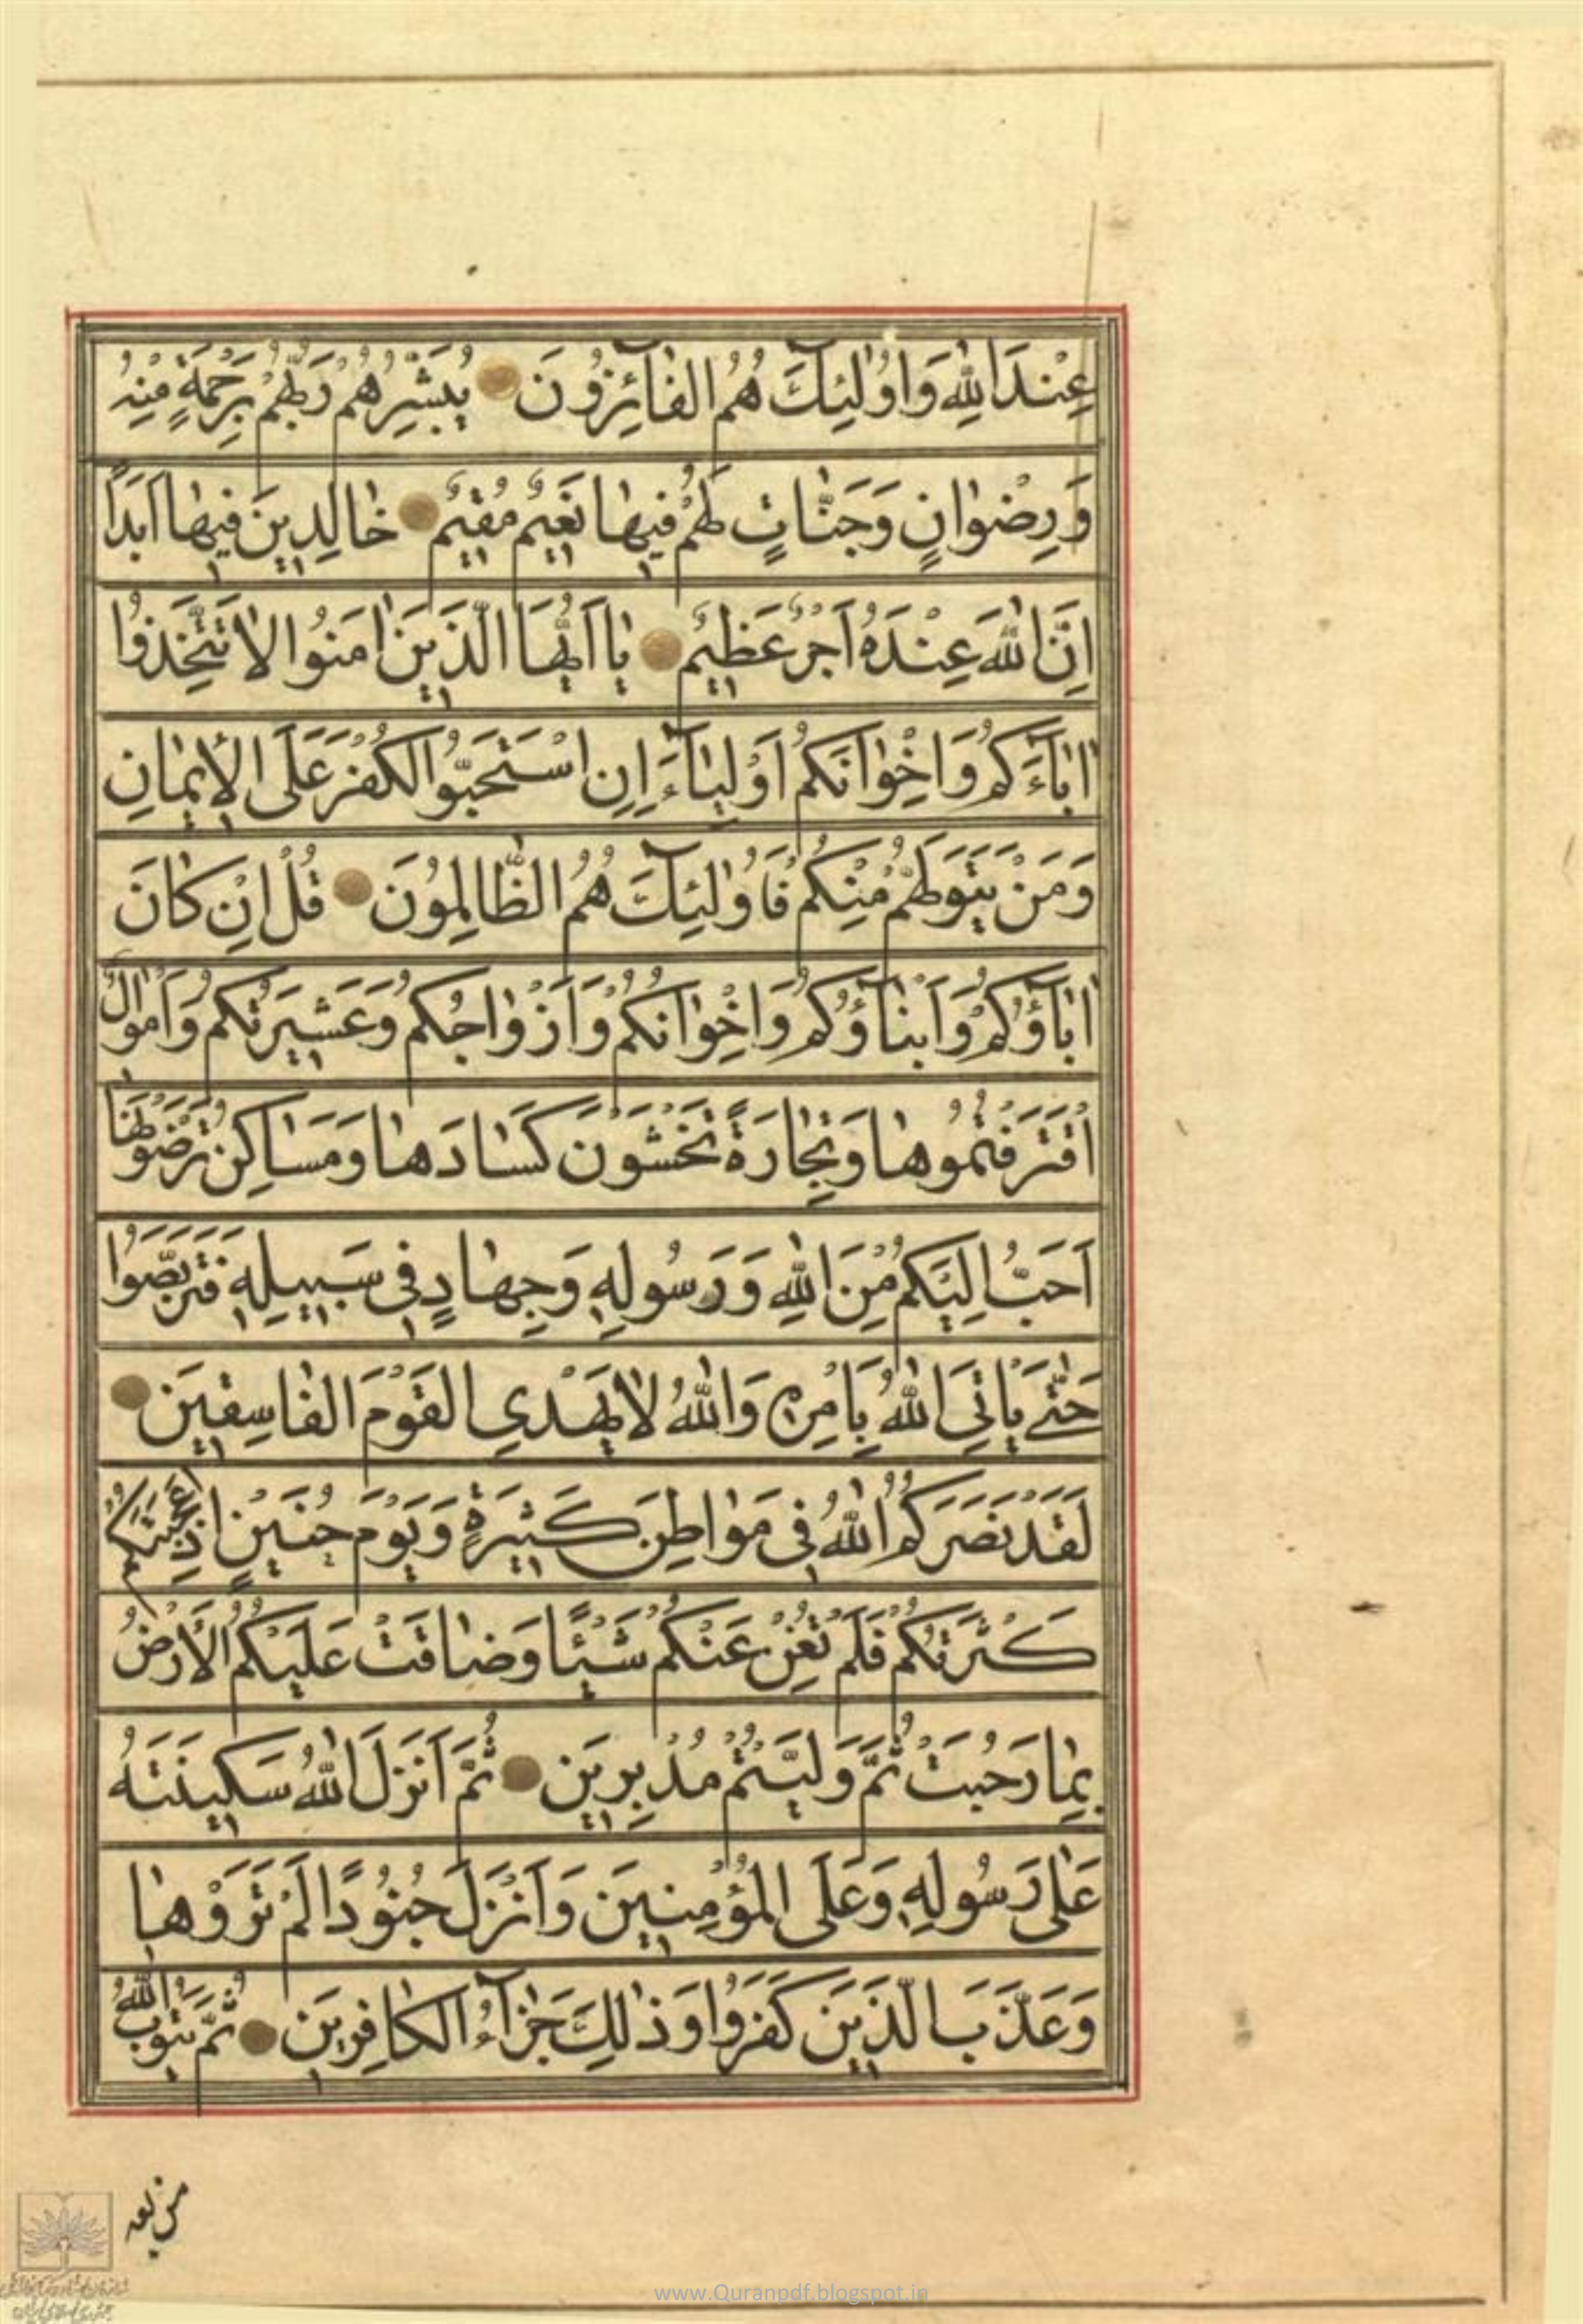 عِنْدَ اللهِ وَاُولٰئِكَ هُمُ الفٰائِزُونَ يُبَشِّرُهُمْ رَبُّهُمْ بِرَحْمَةٍ مِنْهُ
وَرِضْوٰانٍ وَجَنّٰاتٍ لَهُمْ فِيهٰا نَعِيمٌ مُقِيمٌ خٰالِدِينَ فِيهٰا اَبَدًا
اِنَّ اللهَ عِنْدَهُ اَجْرٌ عَظِيمٌ يٰا اَيُّهَا الَّذِينَ اٰمَنُوا لاٰ تَتَّخِذُوا
اٰبٰآءَكُمْ وَاِخْوٰانَكُمْ اَوْلِيٰآءَ اِنِ اسْتَحَبُّوا الكُفْرَ عَلَى الاِيمٰانِ
وَمَنْ يَتَوَلَّهُمْ مِنْكُمْ فَاُولٰئِكَ هُمُ الظّٰالِمُونَ قُلْ اِنْ كٰانَ
اٰبٰآؤُكُمْ وَاَبْنٰآؤُكُمْ وَاِخْوٰانُكُمْ وَاَزْوٰاجُكُمْ وَعَشِيرَتُكُمْ وَاَمْوٰالٌ
اقْتَرَفْتُمُوهٰا وَتِجٰارَةٌ تَخْشَوْنَ كَسٰادَهٰا وَمَسٰاكِنُ تَرْضَوْنَهٰا
اَحَبَّ اِلَيْكُمْ مِنَ اللهِ وَرَسُولِهِ وَجِهٰادٍ فِي سَبِيلِهِ فَتَرَبَّصُوا
حَتّٰى يَاْتِيَ اللهُ بِاَمْرِهِ وَاللهُ لاٰ يَهْدِي القَوْمَ الفٰاسِقِينَ
لَقَدْ نَصَرَكُمُ اللهُ فِي مَوٰاطِنَ كَثِيرَةٍ وَيَوْمَ حُنَيْنٍ اِذْ اَعْجَبَتْكُمْ
كَثْرَتُكُمْ فَلَمْ تُغْنِ عَنْكُمْ شَيْئًا وَضٰاقَتْ عَلَيْكُمُ الاَرْضُ
بِمٰا رَحُبَتْ ثُمَّ وَلَّيْتُمْ مُدْبِرِينَ ثُمَّ اَنْزَلَ اللهُ سَكِينَتَهُ
عَلٰى رَسُولِهِ وَعَلَى المُؤْمِنِينَ وَاَنْزَلَ جُنُودًا لَمْ تَرَوْهٰا
وَعَذَّبَ الَّذِينَ كَفَرُوا وَذٰلِكَ جَزٰآءُ الكٰافِرِينَ ثُمَّ يَتُوبُ اللهُ
من بعد
www.Quranpdf.blogspot.in